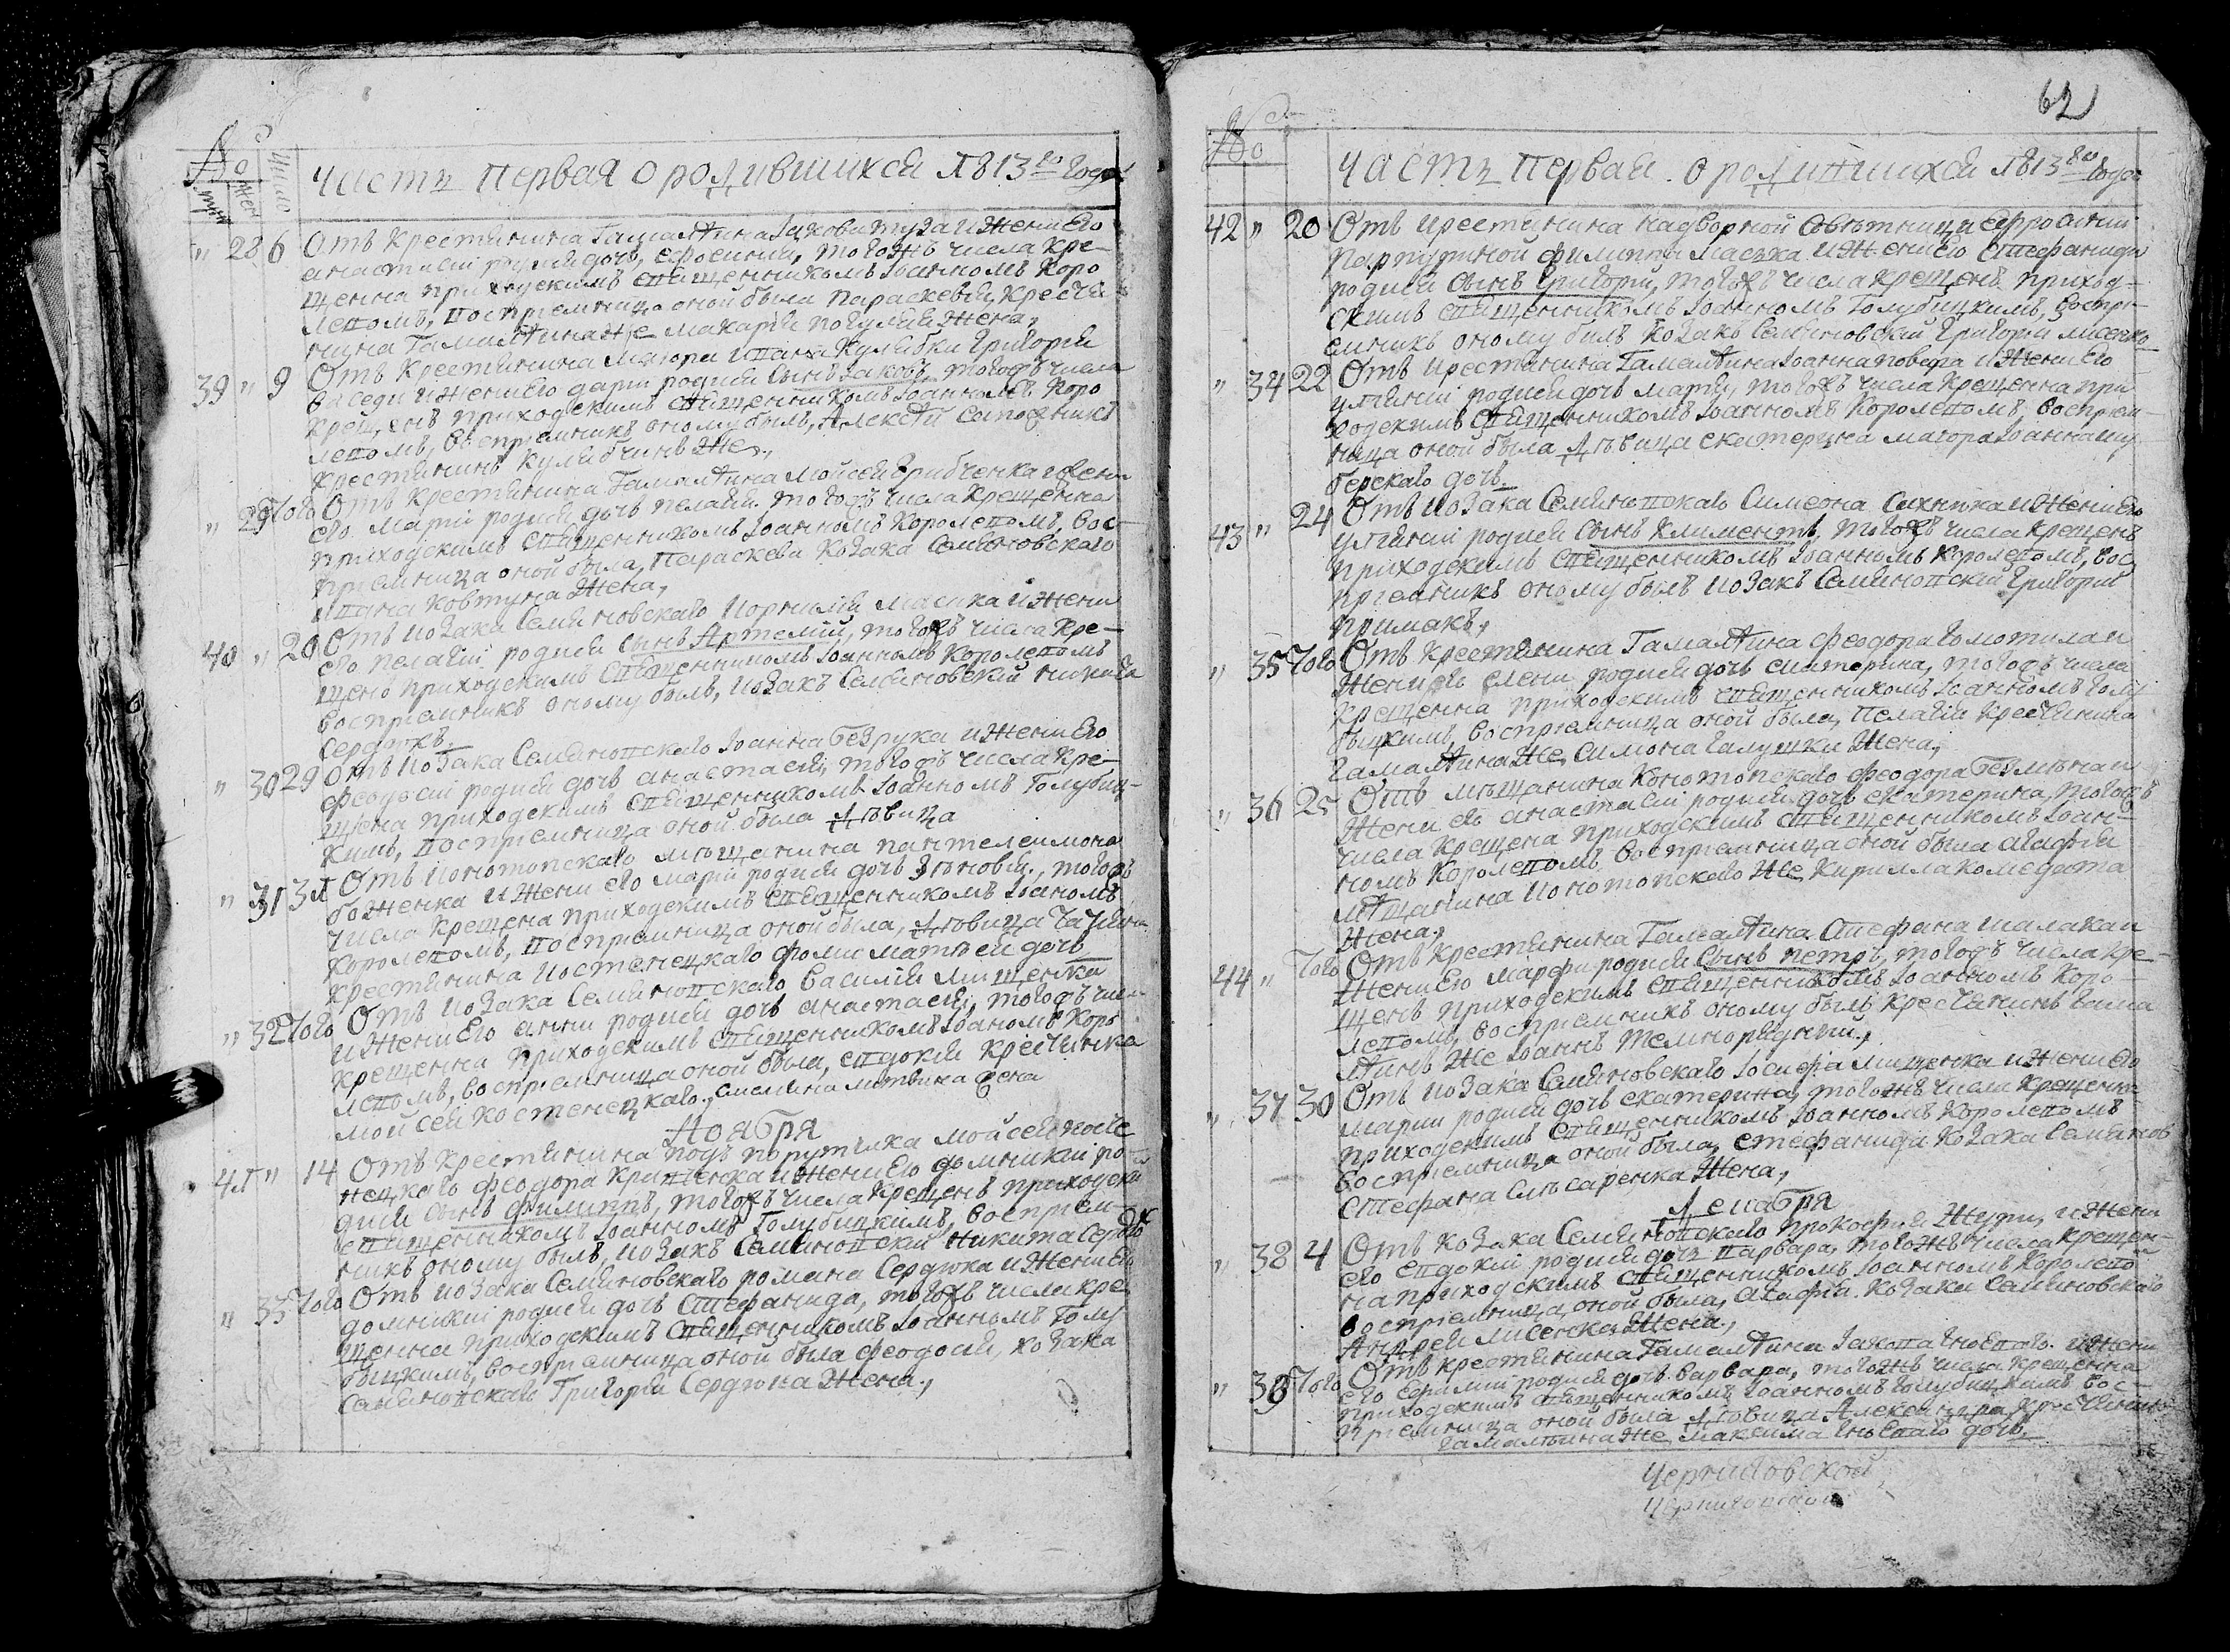 № число
муж жен
Часть первая о родившихся 1813го года
„ 28 6 Отъ крестянина Гамалѣина Іакова туза и жени его
анастасіи родися дочъ, ефросинія, тогожъ числа кре-
щенна приходскимъ священникомъ Іоанномъ Коро
левомъ, воспріемница оной была параскевія, кресча
нина Гамалѣина же макарія жена,
39 „ 9 Отъ крестянина маіора ивана Кулябки григорія
и жени его дарии родися сынъ Іаковъ, тогожъ числа
крещенъ приходскимъ священникомъ Іоанномъ Коро
левомъ, воспріемникъ оному былъ, Алексѣй
крестянинъ кулябчинъ же,
„ 29 Того Отъ крестянина Гамалѣина мойсея грибченка и жени
его маріи родися дочъ пелагия. тогожъ числа крещенна
приходскимъ священникомъ Іоанномъ Королевомъ, вос-
пріемница оной была, параскева козака семяновского
ивана ковтуна жена,
40 „ 20 Отъ козака семяновскаго корнилія масика и жени
его пелагіи родися сынъ Артемій, тогожъ числа кре-
щено приходскимъ священникомъ Іоанномъ Королевомъ
воспріемникъ оному былъ, козакъ семяновский никита
сердюкъ.
„ 30 29 Отъ козака Семяновского Іоанна безрука и жени его
феодосіи родися дочъ анастасия, тогожъ числа кре-
щена приходскимъ священникомъ Іоанномъ Голубиц-
кимъ, воспріемница оной была дѣвица
„ 31 31 Отъ конотопскаго мѣщанина пантелеимона
боженка и жени его маріи родися дочъ зѣновія, тогожъ
числа крещена приходскимъ священникомъ Іоаномъ
королевомъ, воспріемница оной была, дѣвица татияна
крестянина костенецкаго фоми матвѣя дочъ
„ 32 Того Отъ козака Семяновскаго Василія мищенка
и жени его анни родися дочъ анастасия, тогожъ чис
крещенна приходскимъ священникомъ Іоаномъ Коро
левомъ, воспріемница оной была, евдокия кресчянка
мойсея костенецкаго, литвина жена
Ноября
41 „ 14 Отъ крестянина подъ порутчика мойсея косте
нецкаго феодора кривенка и жени его домникіи ро
дися сынъ филиппъ, тогожъ числа крещенъ приходски
священникомъ Іоанномъ Голубицкимъ, воспріем-
никъ оному былъ, козакъ семяновский никита сердюк
„ 33 Того Отъ козака Семяновскаго романа сердюка и жени его
домникіи родися дочъ стефанида, тогожъ числа кре
щенна приходскимъ священникомъ Іоанномъ Голу
бицкимъ, воспріемница оной была феодосия, козака
Семяновскаго Григорія Сердюка жена,
62
№
Часть первая о родившихся 1813го года
42 „ 20 Отъ крестянина надворной совѣтници ефросинии
филиппа масѣка и жени его стефаниди
родися сынъ григорій, тогожъ числа крещенъ приход-
скимъ священникомъ Іоанномъ Голубицкимъ, воспрі-
емникъ оному былъ козакъ Семяновский Григорий мисечко
„ 34 22 Отъ крестянина Гамалѣина Іоанна повара и жени его
улянии родися дочъ мария, тогожъ числа крещенна при
ходскимъ священникомъ Іоанномъ Королевомъ, воспріем-
ница оной была дѣвица екатерина маіора Іоанна
берскаго дочъ.
43 „ 24 Отъ козака Семяновскаго Симеона и жени его
улянии родися сынъ климентъ, тогожъ числа крещенъ
приходскимъ священникомъ Іоанномъ Королевомъ, вос
пріемникъ оному былъ козакъ Семяновский Григорий
примакъ,
„ 35 Того Отъ крестянина Гамалѣина феодора и
жени его елени родися дочъ екатерина, тогожъ числа
крещенна приходскимъ священникомъ Іоанномъ Голу
бицкимъ, воспріемница оной была, пелагия кресчянина
Гамалѣина же, симона галушки жена,
„ 36 25 Отъ мѣщанина конотопскаго феодора и
жени его анастасіи родися дочъ екатерина, тогожъ
числа крещена приходскимъ священникомъ Іоан-
номъ Королевомъ воспріемница оной была агафия
мѣщанина конотопскаго же кирилла
жена,
44 „ Того Отъ крестянина Гамалѣина Стефана и
жени его марфи родися сынъ петръ, тогожъ числа кре-
щенъ приходскимъ священникомъ Іоанномъ Коро-
левомъ, воспріемникъ оному былъ кресчанинъ Гама
лѣинъ же Іоаннъ
„ 37 30 Отъ козака Семяновскаго Іосифа мищенка и жени его
марии родися дочъ екатерина, тогожъ числа крещенна
приходскимъ священникомъ Іоанномъ Королевомъ
воспріемница оной была, стефанида козака Семянов
Стефана слѣсаренка жена,
Декабря
„ 38 4 Отъ козака Семяновскаго прокофія и жени
его евдокіи родися дочъ варвара, тогожъ числа крещен-
на приходскимъ священникомъ Іоанномъ Королево
воспріемница оной была, агафия козака семяновскаго
Андрея мисенка жена,
„ 39 Того Отъ крестянина Гамалѣина и жени
его родися дочъ варвара, тогожъ числа крещенна
приходскимъ священникомъ Іоанномъ Голубицкимъ вос-
пріемница оной была дѣвица Александра кресчянина
Гамалѣина же максима дочъ.
Черниговской
Черниговской